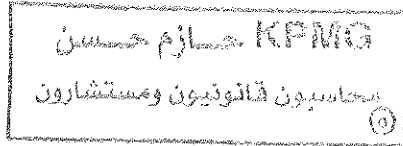 KPMG حازم حسن
محاسبون قانونيون ومستشارون
(٥)